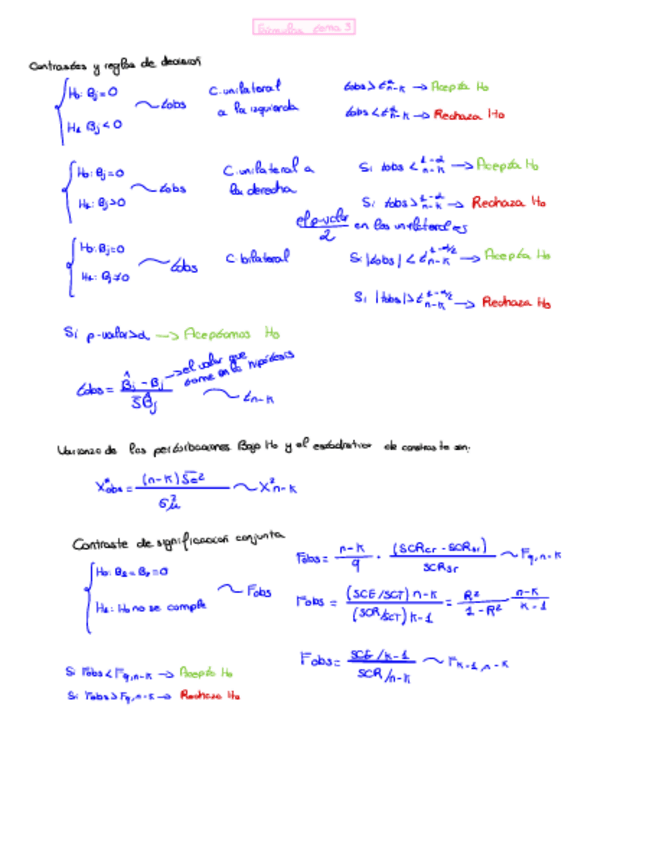 Fórmulas tema 3
Contrastes y reglas de decisión
H₀: βj = 0
H₁: βj < 0
~ tobs
C. unilateral a la izquierda
tobs > t^α n-k → Acepta H₀
tobs < t^α n-k → Rechaza H₀
H₀: βj = 0
H₁: βj > 0
~ tobs
C. unilateral a la derecha
Si tobs < t^1-α n-k → Acepta H₀
Si tobs > t^1-α n-k → Rechaza H₀
el p-valor / 2 en los unilaterales
H₀: βj = 0
H₁: βj ≠ 0
~ tobs
C bilateral
Si |tobs| < t^1-α/2 n-k → Acepta H₀
Si |tobs| > t^1-α/2 n-k → Rechaza H₀
Si p-valor > α → Aceptamos H₀
tobs = (β̂j - βj) / Sβ̂j ~ tn-k
→ el valor que tome en la hipótesis
Varianza de las perturbaciones. Bajo H₀ y el estadístico de contraste sin:
X²obs = (n-k) Se² / σ²μ ~ X²n-k
Contraste de significación conjunta
H₀: β₂ = β₃ = 0
H₁: H₀ no se cumple
~ Fobs
Fobs = n-k / q · (SCRcr - SCRsr) / SCRsr ~ Fq, n-k
Fobs = (SCE/SCT) n-k / (SCR/SCT) k-1 = R² / 1-R² n-k / k-1
Fobs = SCE/k-1 / SCR/n-k ~ Fk-1, n-k
Si Fobs < Fq,n-k → Acepto H₀
Si Fobs > Fq,n-k → Rechazo H₀